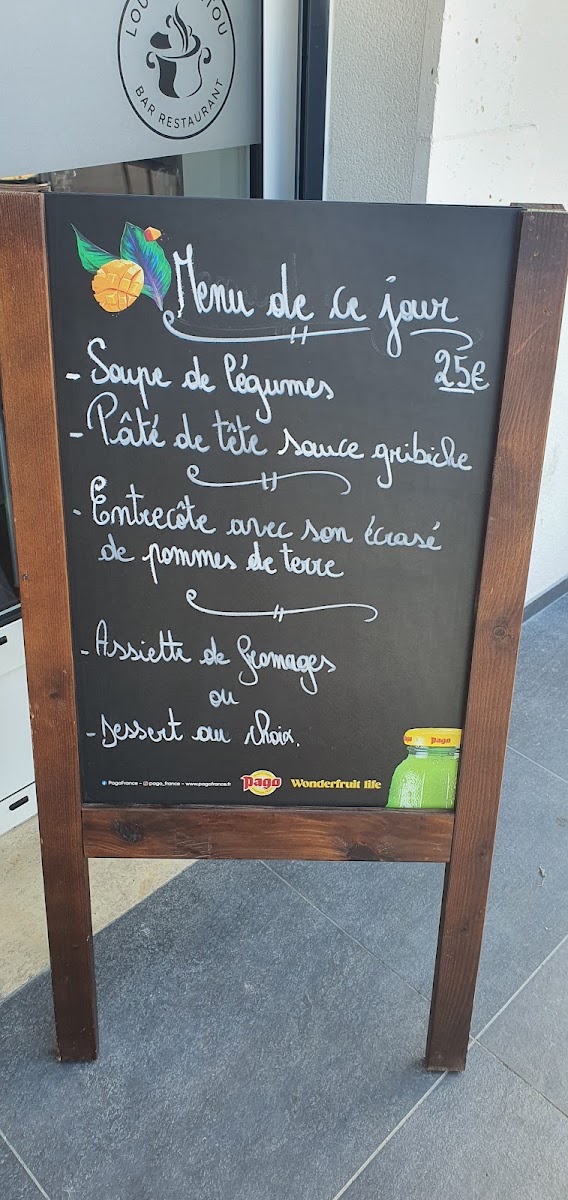 LOU
TOU
BAR RESTAURANT
Menu de ce jour
25€
- Soupe de légumes
- Pâté de tête sauce gribiche
- Entrecôte avec son écrasé
de pommes de terre
- Assiette de fromages
ou
- Dessert au choix.
PagoFrance - pago_france - www.pagofrance.fr
Pago
Wonderfruit life
Pago